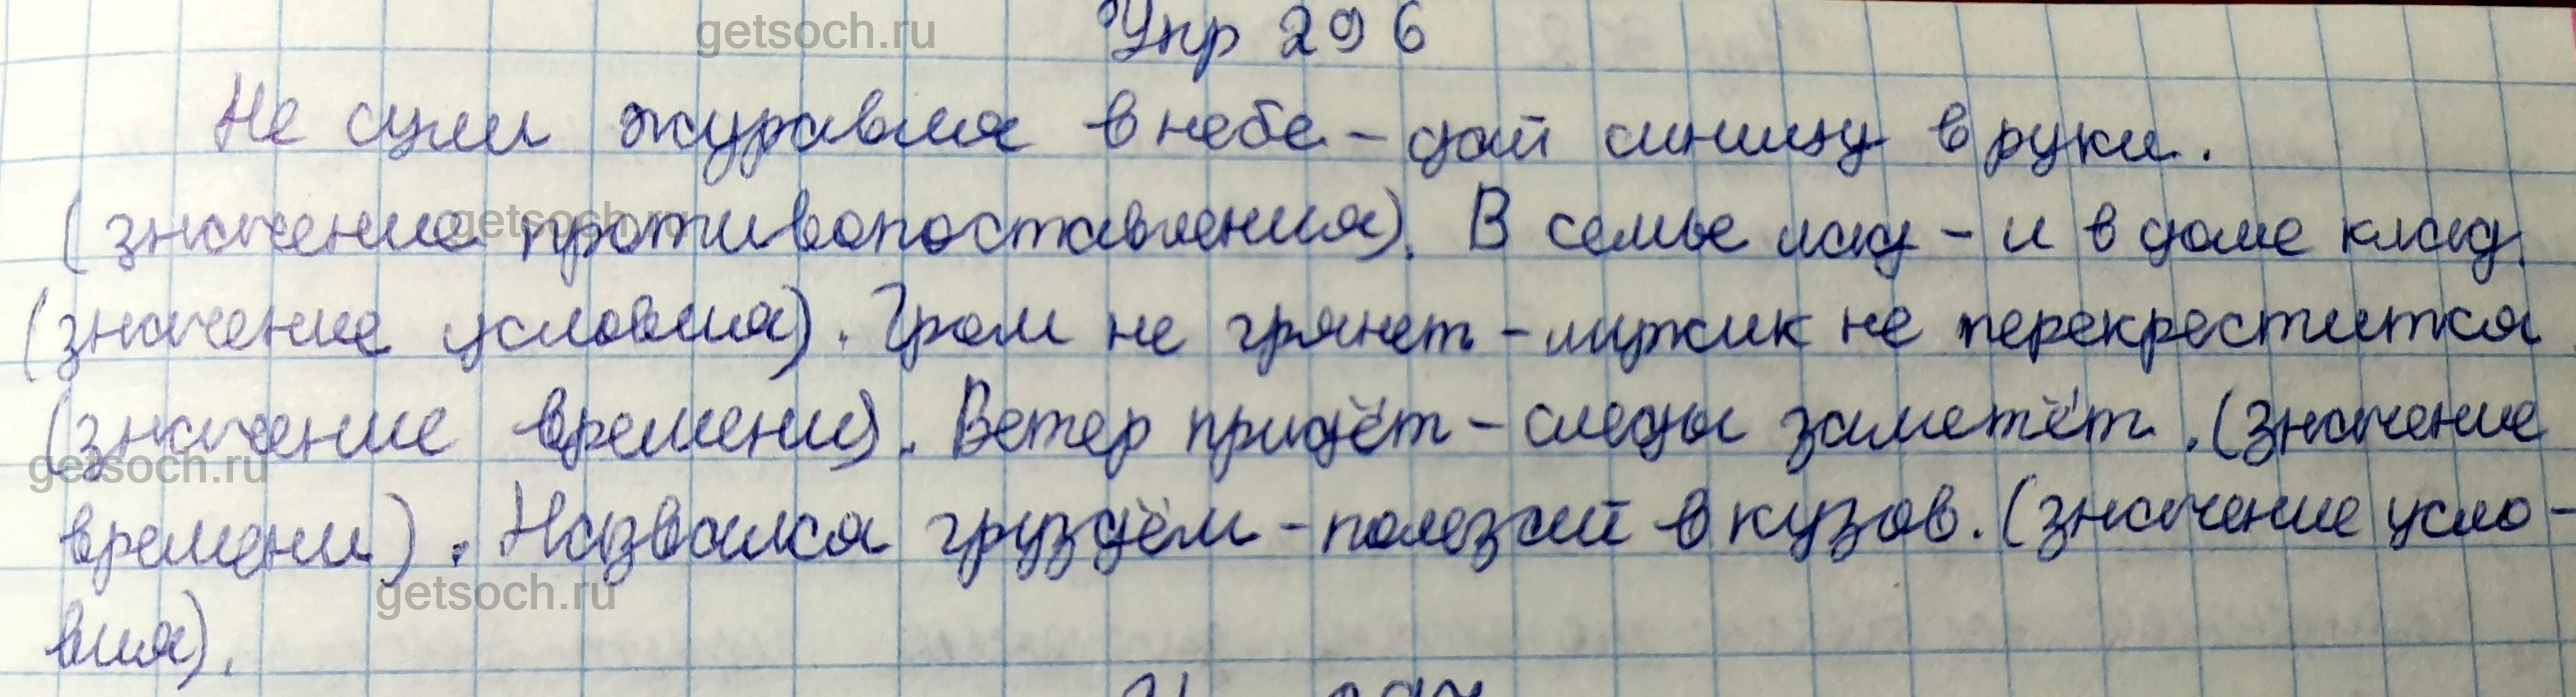 getsoch.ru
Упр 296
Не сули журавля в небе – дай синицу в руки.
getsoch.ru
(значение противопоставления). В семье лад – и в доме клад.
(значение условия). Гром не грянет – мужик не перекрестится
(значение времени). Ветер придёт – следы заметёт. (значение
getsoch.ru
времени). Назвался груздём – полезай в кузов. (значение усло-
getsoch.ru
вия).